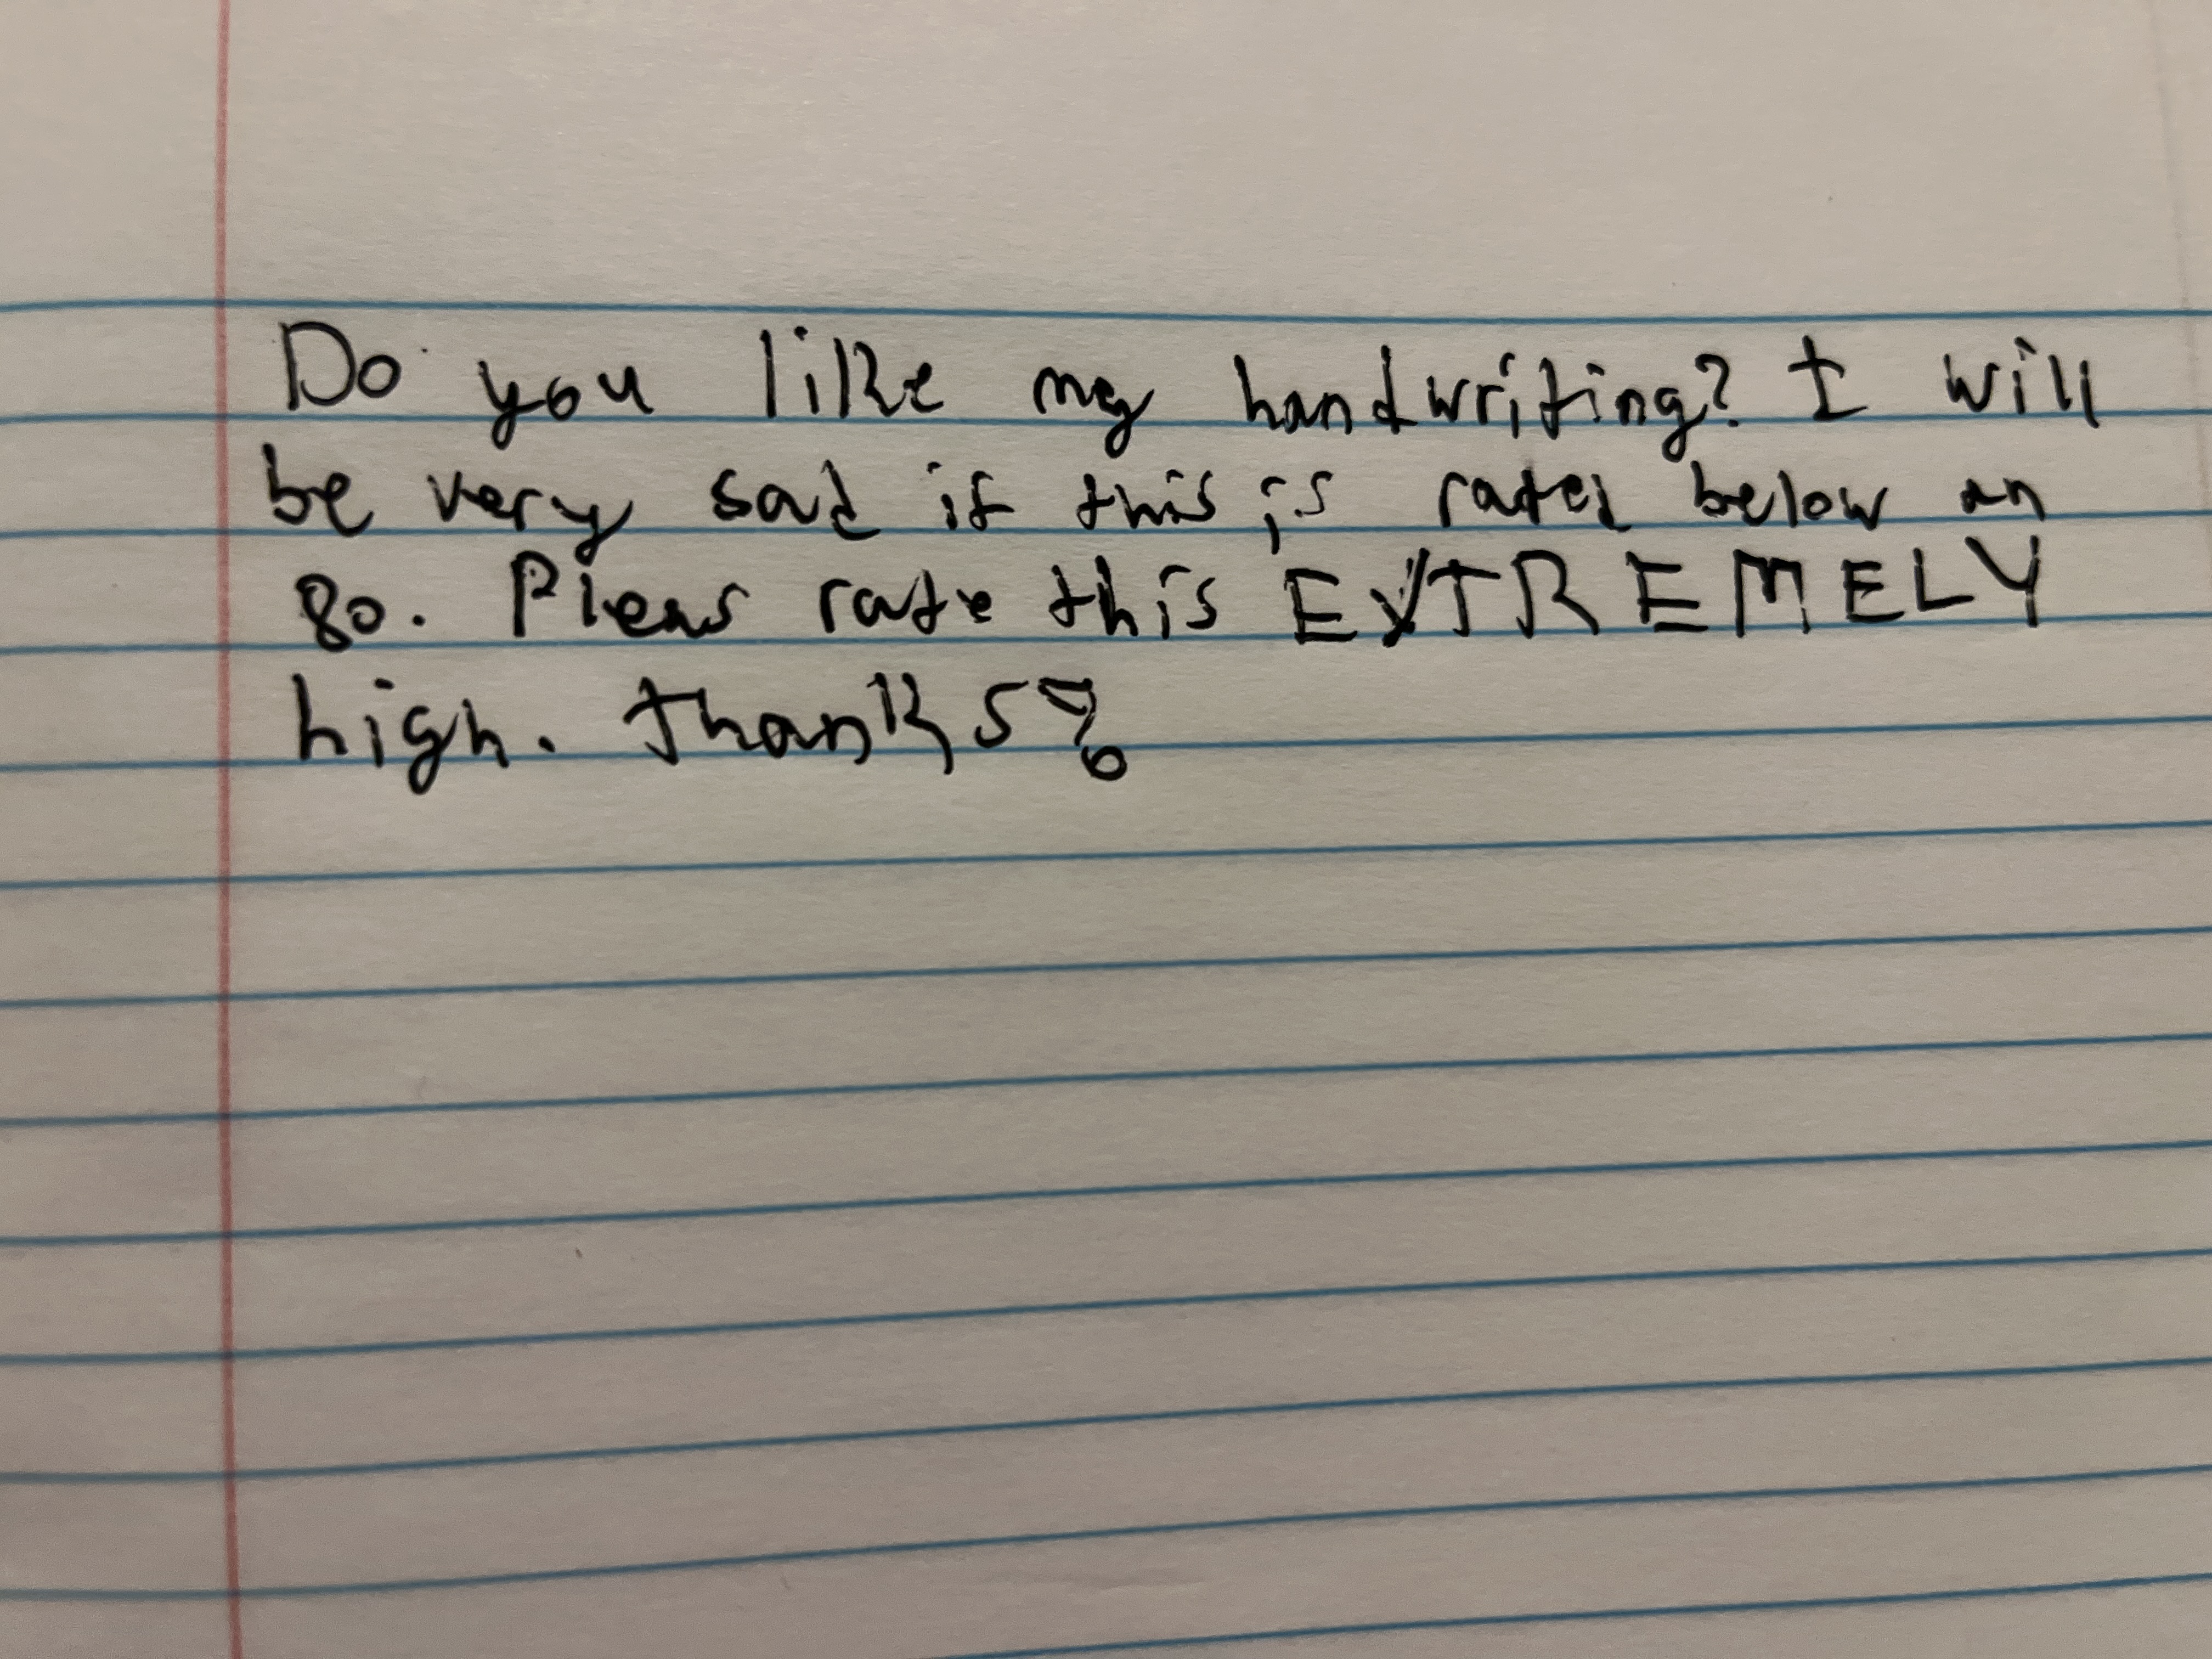 Do you like my handwriting? I will
be very sad if this is rated below an
80. Pleas rate this EXTREMELY
high. Thanks